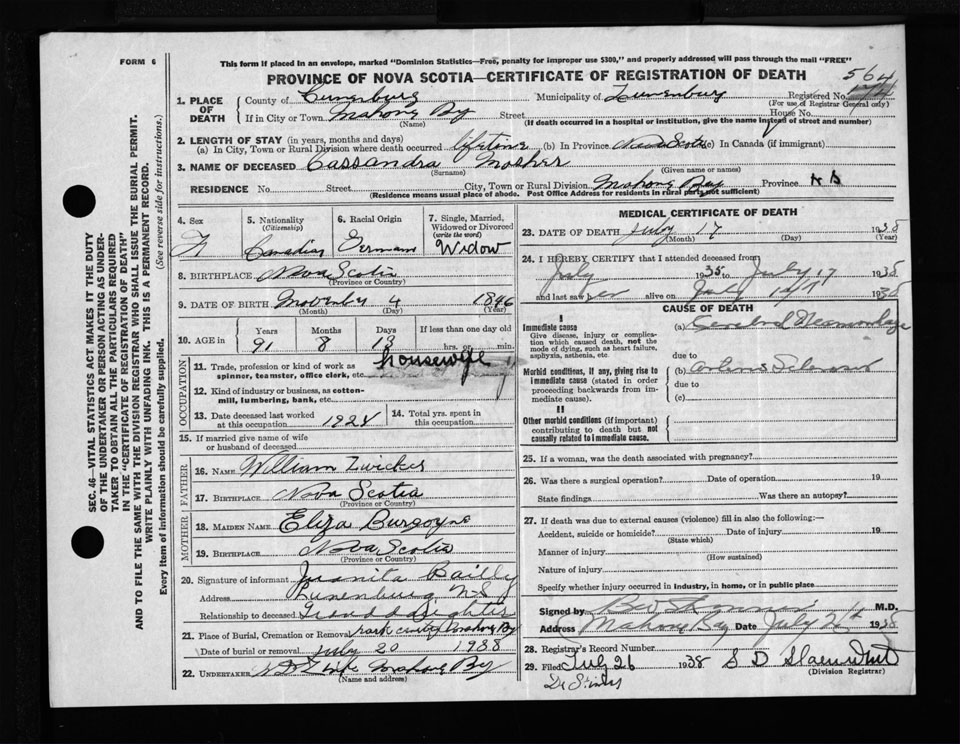 FORM 6
This form if placed in an envelope, marked "Dominion Statistics—Free, penalty for improper use $300," and properly addressed will pass through the mail "FREE"
PROVINCE OF NOVA SCOTIA—CERTIFICATE OF REGISTRATION OF DEATH
564
1. PLACE OF DEATH
County of Lunenburg Municipality of Lunenburg Registered No. 174
(For use of Registrar General only)
If in City or Town Mahone By Street House No.
(Name) (If death occurred in a hospital or institution, give the name instead of street and number)
2. LENGTH OF STAY (in years, months and days)
(a) In City, Town or Rural Division where death occurred lifetime (b) In Province Nova Scotia (c) In Canada (if immigrant)
3. NAME OF DECEASED Cassandra Mosher
(Surname) (Given name or names)
RESIDENCE No. Street City, Town or Rural Division Mahone Bay Province N S
(Residence means usual place of abode. Post Office Address for residents in rural parts not sufficient)
SEC. 46—VITAL STATISTICS ACT MAKES IT THE DUTY
OF THE UNDERTAKER OR PERSON ACTING AS UNDER-
TAKER TO OBTAIN ALL THE PARTICULARS REQUIRED
IN THE "CERTIFICATE OF REGISTRATION OF DEATH"
AND TO FILE THE SAME WITH THE DIVISION REGISTRAR WHO SHALL ISSUE THE BURIAL PERMIT.
WRITE PLAINLY WITH UNFADING INK. THIS IS A PERMANENT RECORD.
Every item of information should be carefully supplied. (See reverse side for instructions.)
4. Sex
F
5. Nationality
(Citizenship)
Canadian
6. Racial Origin
German
7. Single, Married,
Widowed or Divorced
(write the word)
Widow
8. BIRTHPLACE Nova Scotia
(Province or Country)
9. DATE OF BIRTH November 4 1846
(Month) (Day) (Year)
10. AGE in Years Months Days If less than one day old
91 8 13 hrs. or min.
OCCUPATION
11. Trade, profession or kind of work as
spinner, teamster, office clerk, etc. housewife
12. Kind of industry or business, as cotton-
mill, lumbering, bank, etc.
13. Date deceased last worked
at this occupation 1928
14. Total yrs. spent in
this occupation
15. If married give name of wife
or husband of deceased
FATHER
16. NAME William Zwicker
17. BIRTHPLACE Nova Scotia
(Province or Country)
MOTHER
18. MAIDEN NAME Eliza Burgoyne
19. BIRTHPLACE Nova Scotia
(Province or Country)
20. Signature of informant Juanita Bailly
Address Lunenburg N.S
Relationship to deceased Granddaughter
21. Place of Burial, Cremation or Removal Mahone By
Date of burial or removal July 20 1938
22. UNDERTAKER Mahone By
(Name and address)
MEDICAL CERTIFICATE OF DEATH
23. DATE OF DEATH July 17 1938
(Month) (Day) (Year)
24. I HEREBY CERTIFY that I attended deceased from
July 1935 to July 17 1938
and last saw er alive on July 1938
CAUSE OF DEATH
I
Immediate cause
Give disease, injury or complica-
tion which caused death, not the
mode of dying, such as heart failure,
asphyxia, asthenia, etc.
(a) Cerebral Hemorrhage
due to
Morbid conditions, if any, giving rise to
immediate cause (stated in order
proceeding backwards from im-
mediate cause).
(b)
due to
(c)
II
Other morbid conditions (if important)
contributing to death but not
causally related to immediate cause.
25. If a woman, was the death associated with pregnancy?
26. Was there a surgical operation? Date of operation 19
State findings Was there an autopsy?
27. If death was due to external causes (violence) fill in also the following:—
Accident, suicide or homicide? Date of injury 19
(State which)
Manner of injury
(How sustained)
Nature of injury
Specify whether injury occurred in industry, in home, or in public place
Signed by M.D.
Address Mahone Bay Date July 1938
28. Registrar's Record Number
29. Filed July 26 1938 S D
(Division Registrar)